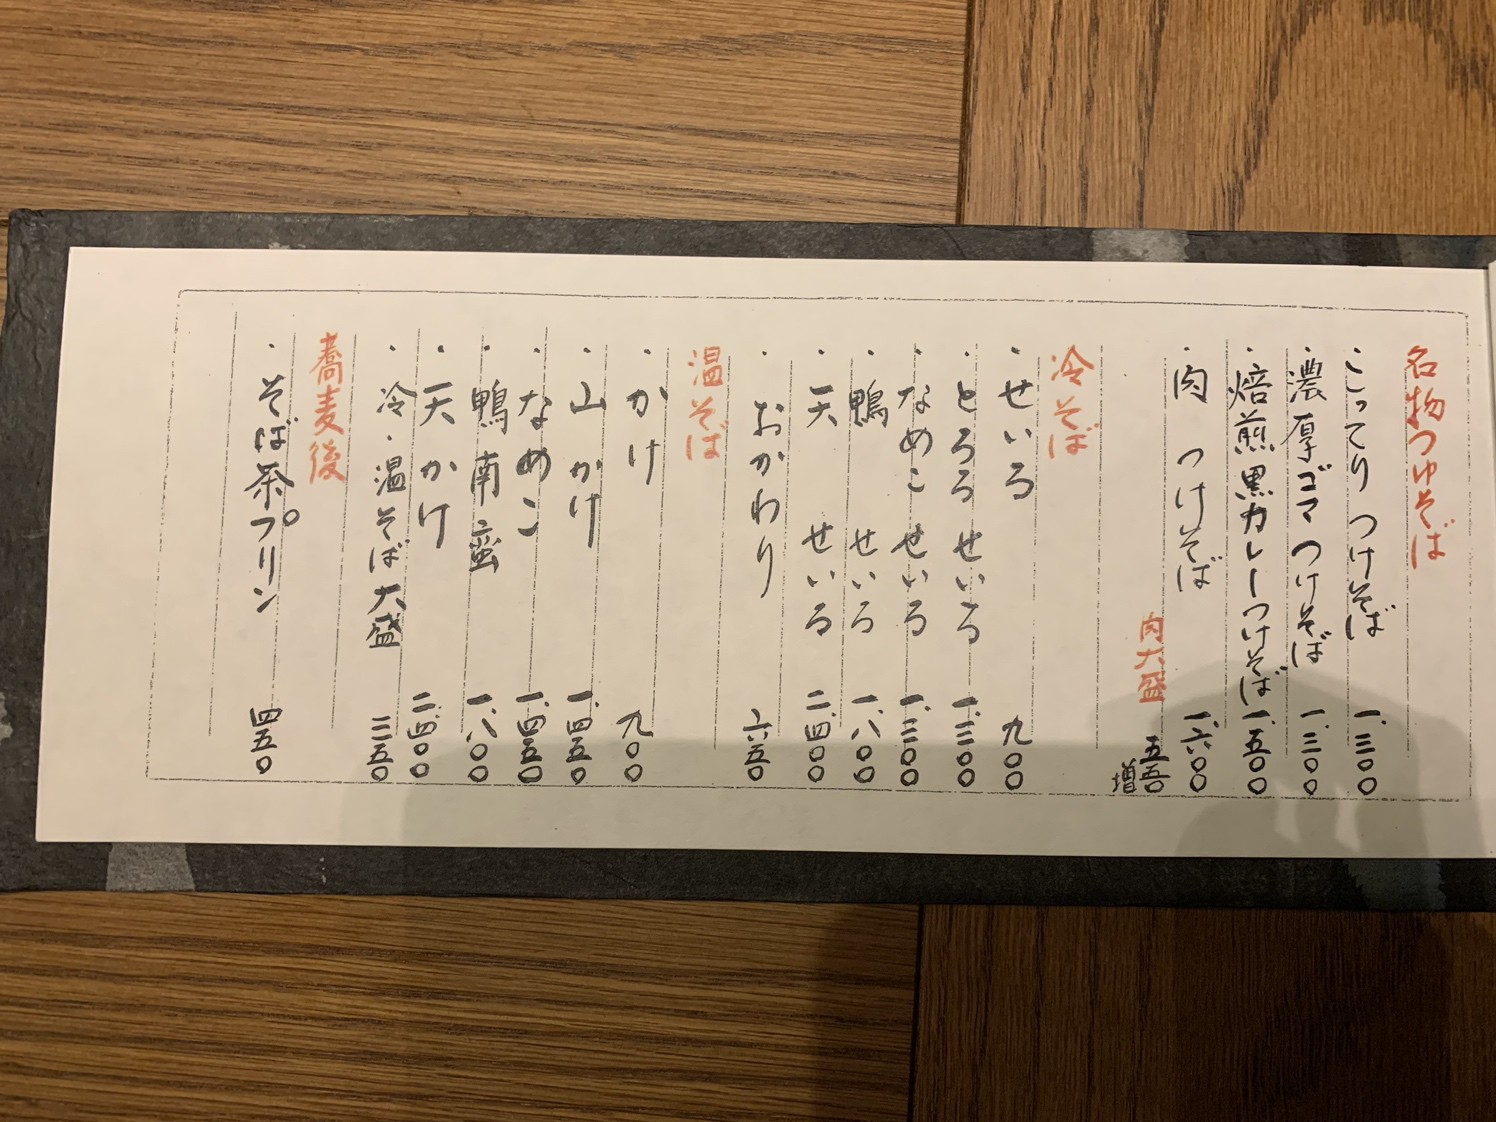 名物つゆそば
・こってりつけそば 一、三〇〇
・濃厚ゴマつけそば 一、三〇〇
・焙煎黒カレーつけそば 一、五〇〇
・肉つけそば 一、六〇〇
肉大盛 五五〇増
冷そば
・せいろ 九〇〇
・とろろせいろ 一、三〇〇
・なめこせいろ 一、三〇〇
・鴨せいろ 一、八〇〇
・天せいろ 二、四〇〇
・おかわり 六五〇
温そば
・かけ 九〇〇
・山かけ 一、四五〇
・なめこ 一、四五〇
・鴨南蛮 一、八〇〇
・天かけ 二、四〇〇
・冷・温そば大盛 三五〇
蕎麦後
・そば茶プリン 四五〇